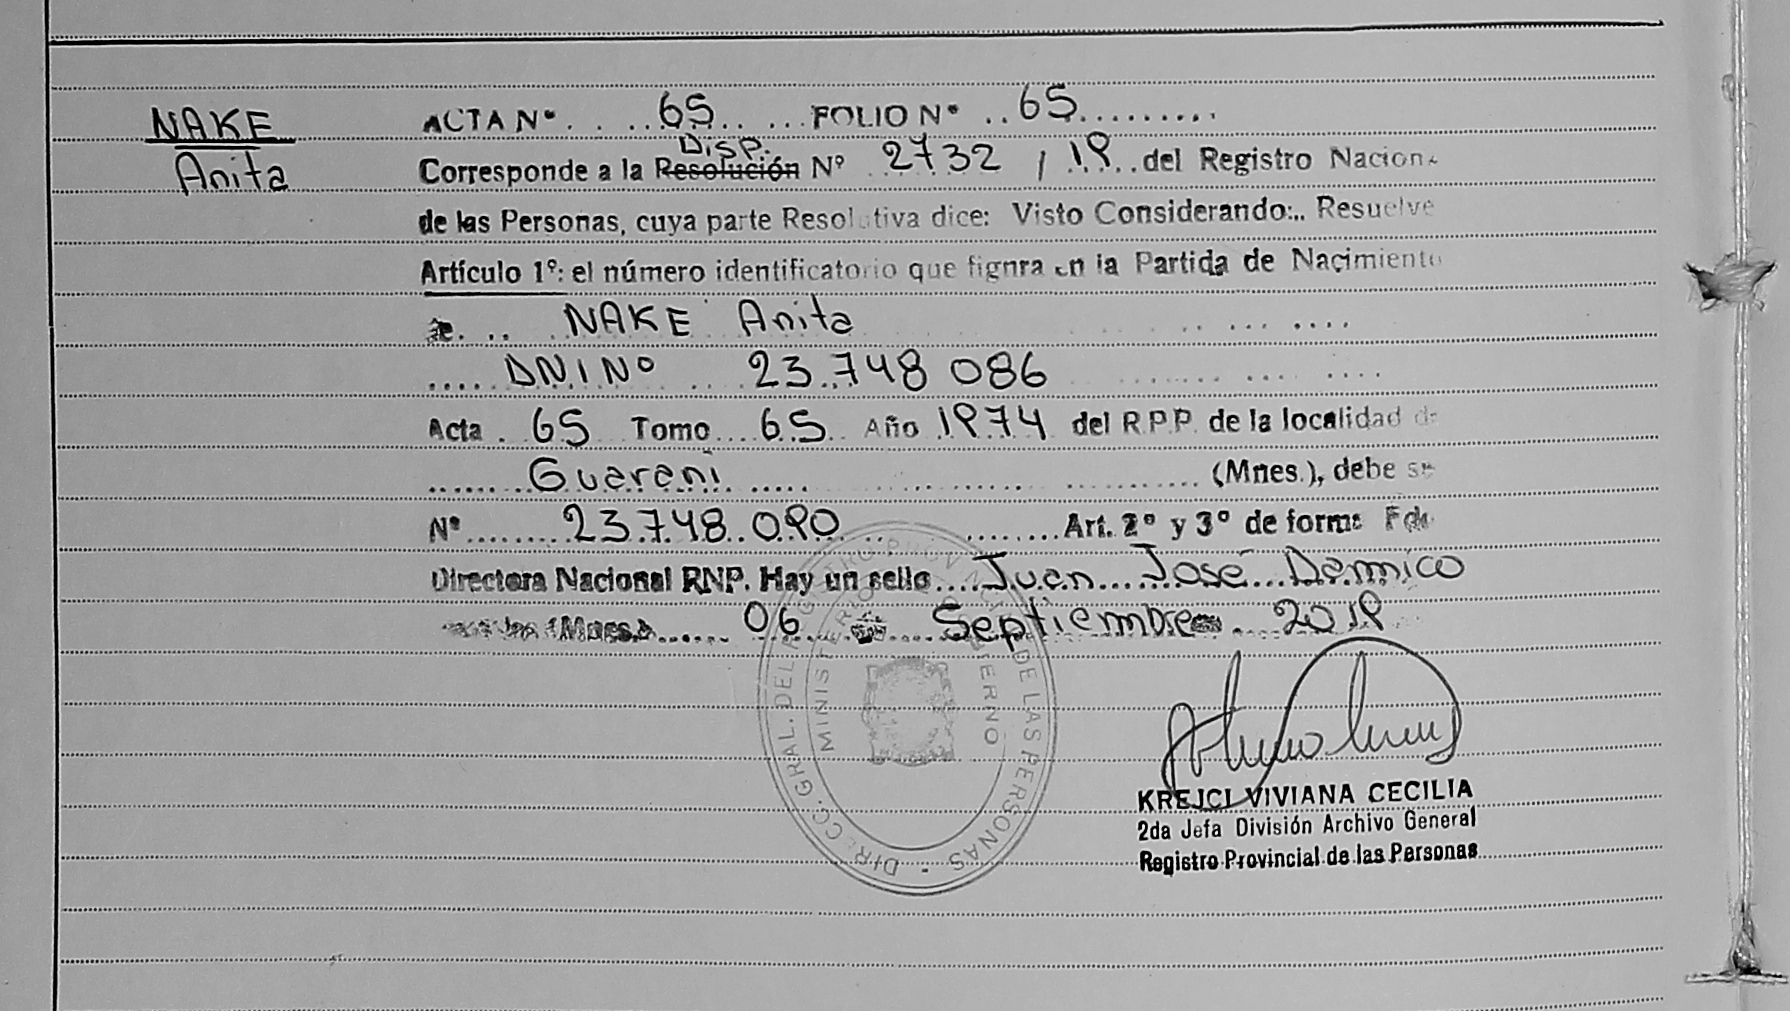 NAKE
Anita
ACTA Nº 65 FOLIO Nº 65
Disp.
Corresponde a la Resolución Nº 2732 / 19 del Registro Nacion
de las Personas, cuya parte Resolutiva dice: Visto Considerando:.. Resuelve
Artículo 1º: el número identificatorio que fignra en la Partida de Nacimiento
NAKE Anita
DNI Nº 23.748 086
Acta 65 Tomo 65 Año 1974 del R.P.P. de la localidad de
Guarani (Mnes.), debe se
Nº 23.748.090 Art. 2º y 3º de forma Fdo
Directora Nacional RNP. Hay un sello Juan José Damico
(Mnes.) 06 de Septiembre 2019
DIRECC. GRAL. DEL REGISTRO PROVINCIAL DE LAS PERSONAS
MINISTERIO DE GOBIERNO
KREJCI VIVIANA CECILIA
2da Jefa División Archivo General
Registro Provincial de las Personas